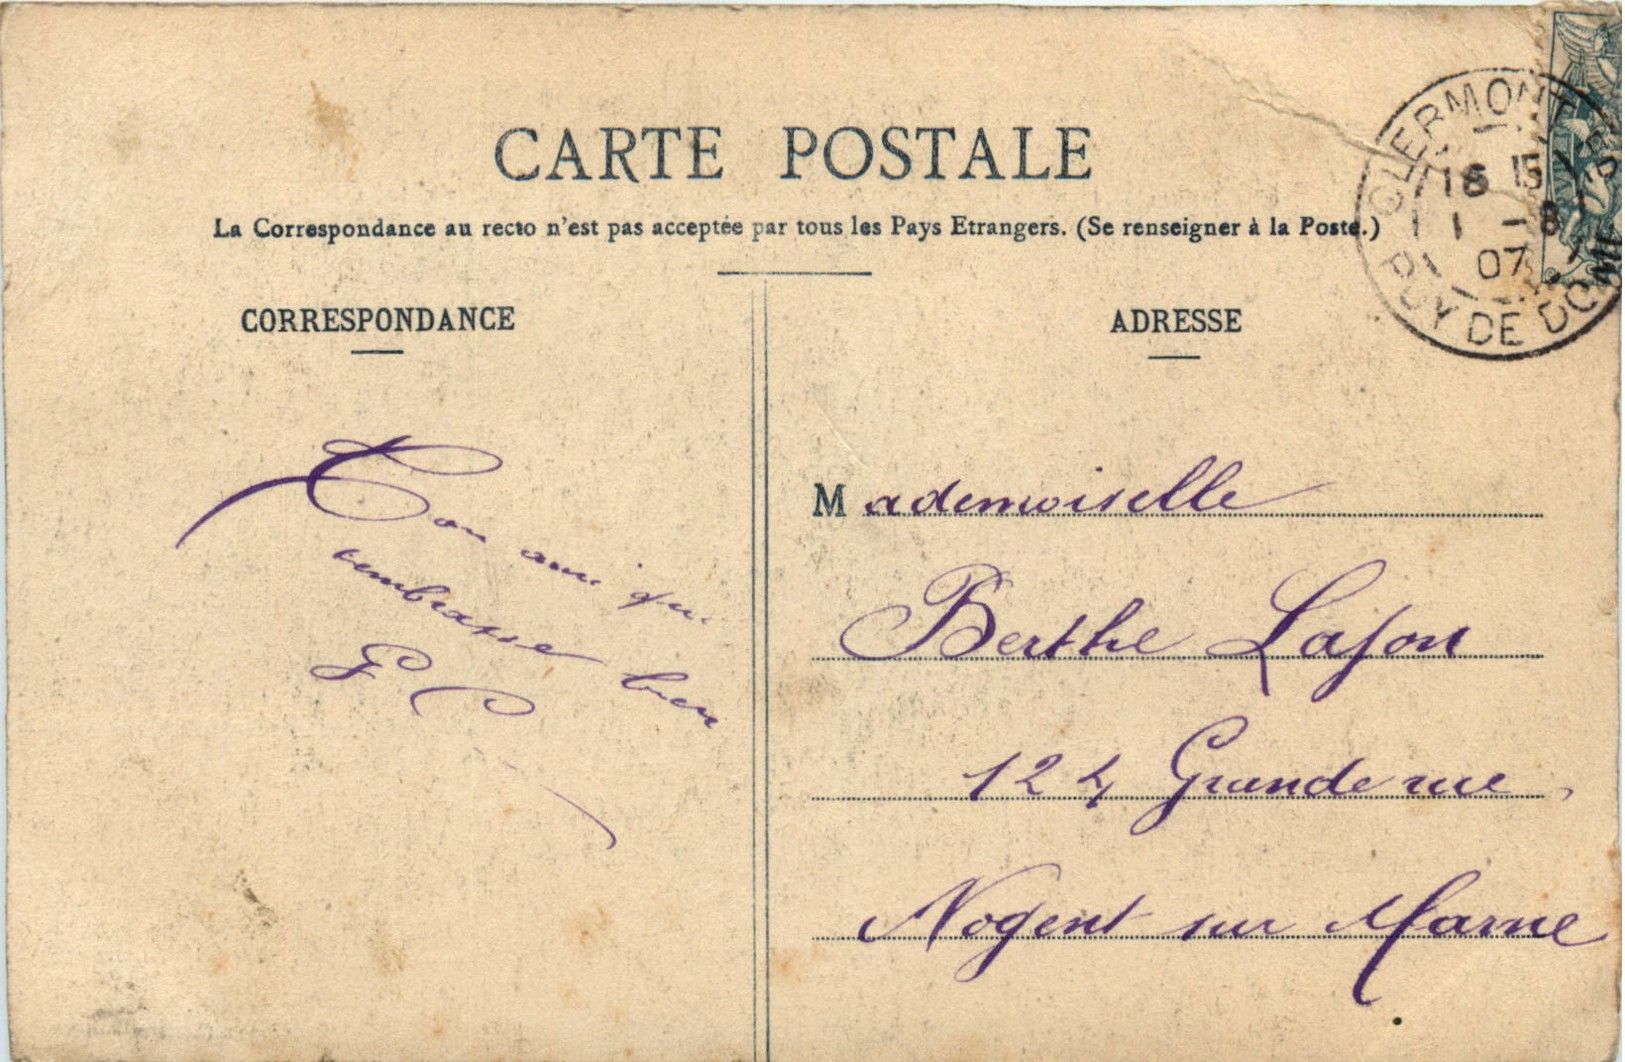 CARTE POSTALE
La Correspondance au recto n'est pas acceptée par tous les Pays Etrangers. (Se renseigner à la Poste.)
CORRESPONDANCE
Ton ami qui
t'embrasse bien
G.
ADRESSE
CLERMONT
16 15
1 - 8
07
PUY DE DOME
Mademoiselle
Berthe Lafon
124 Grande rue
Nogent sur Marne